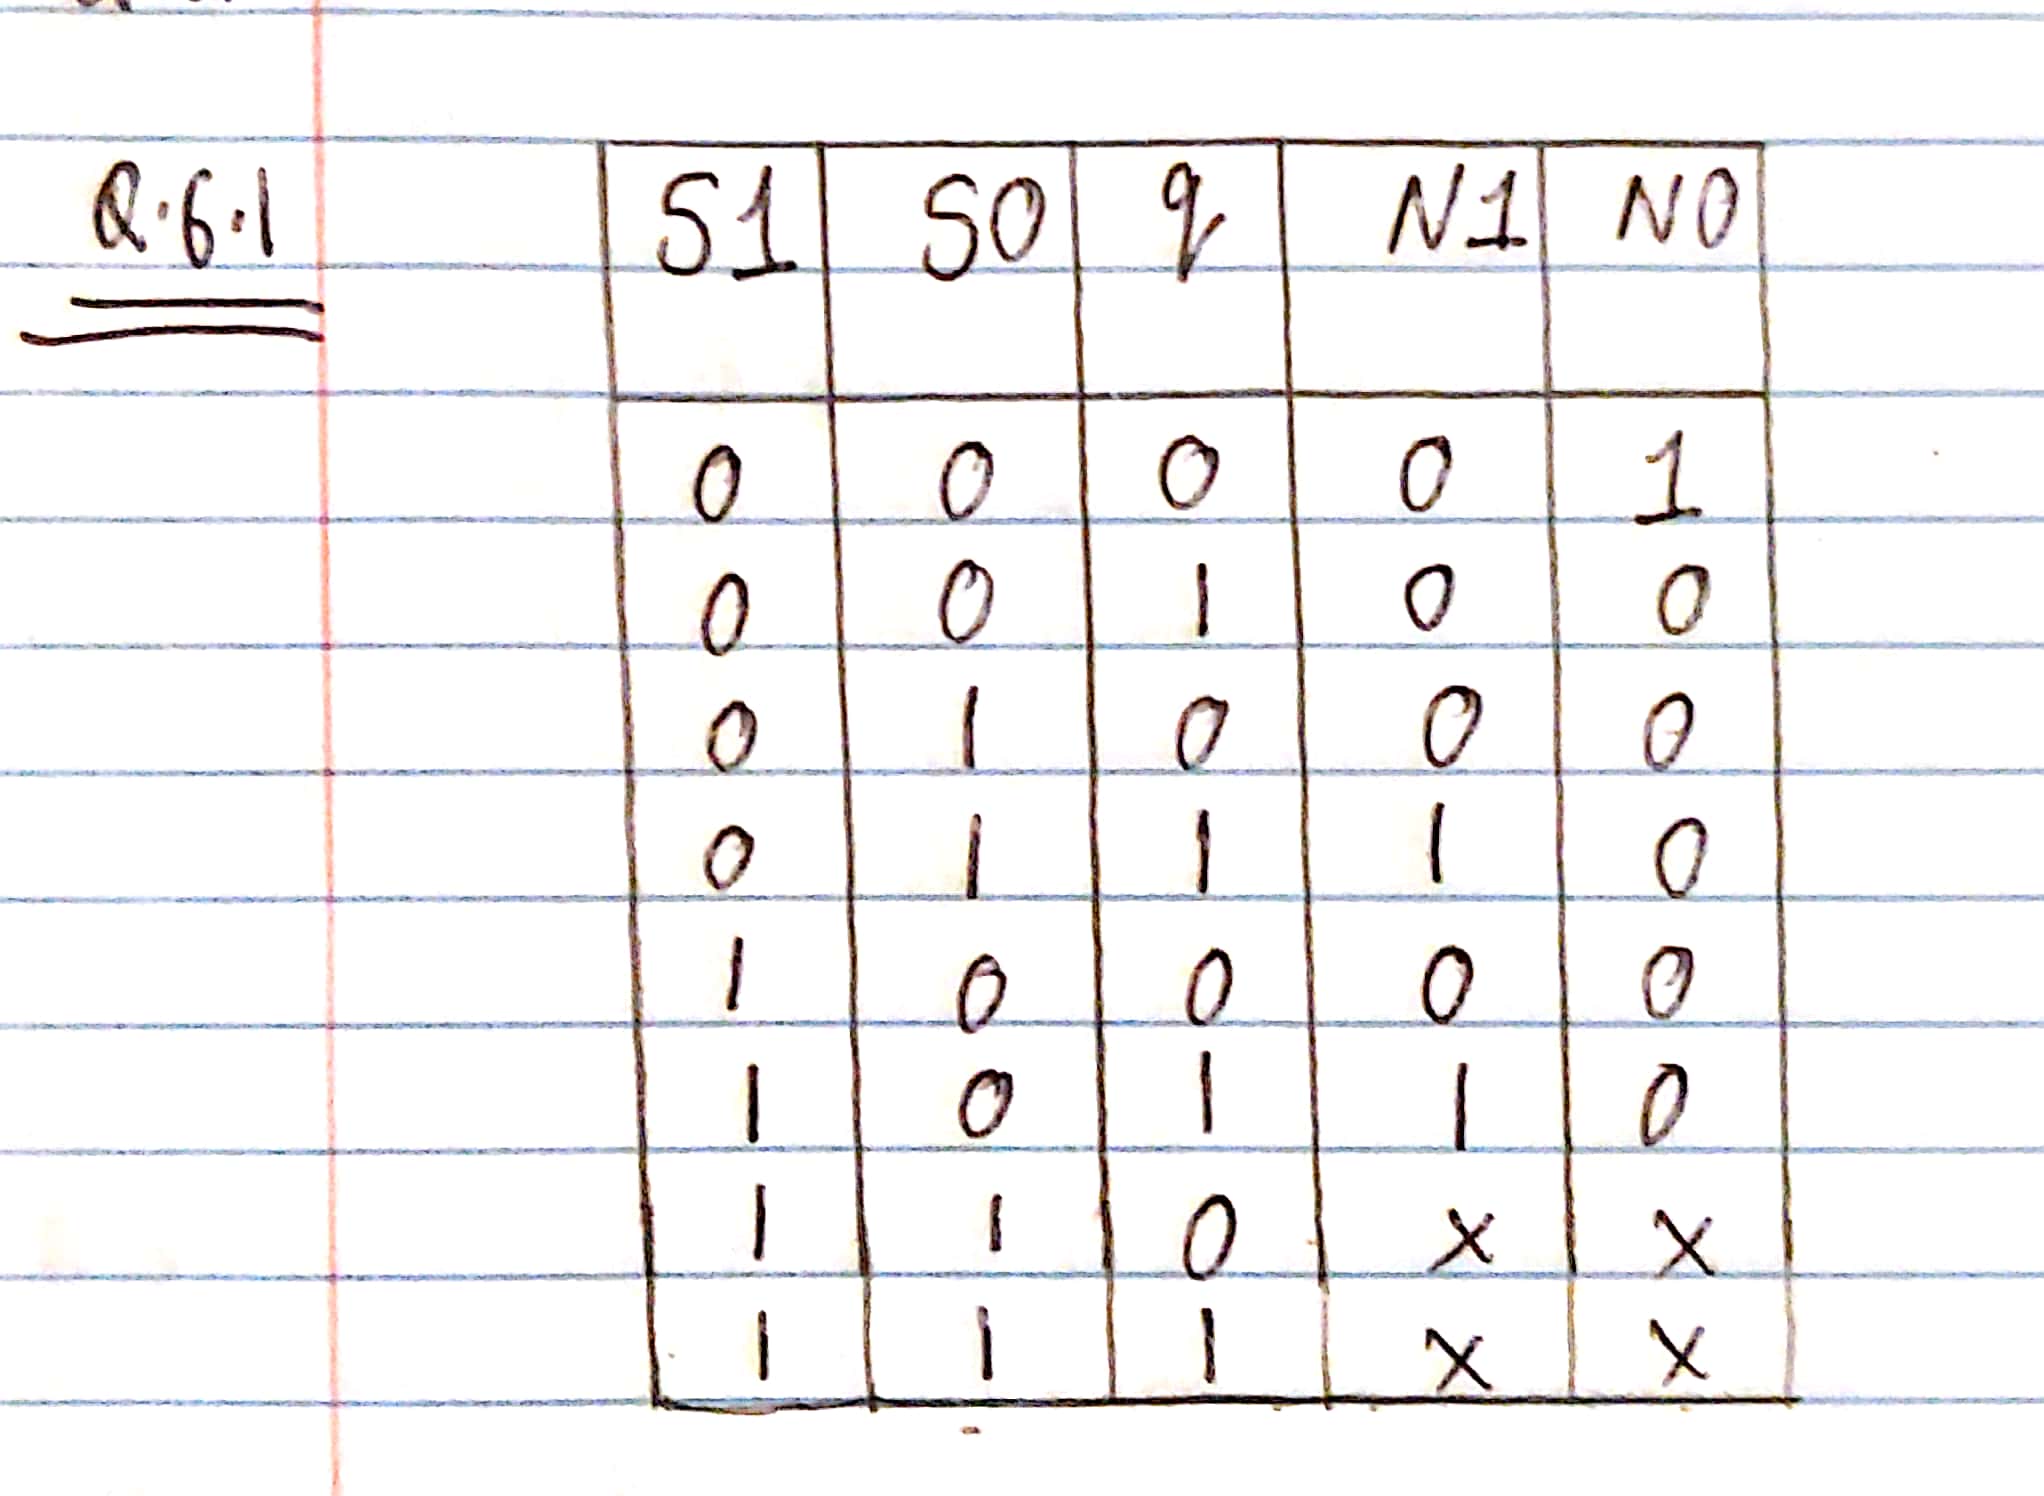 Q.6.1 S1 S0 q N1 N0
0 0 0 0 1
0 0 1 0 0
0 1 0 0 0
0 1 1 1 0
1 0 0 0 0
1 0 1 1 0
1 1 0 x x
1 1 1 x x